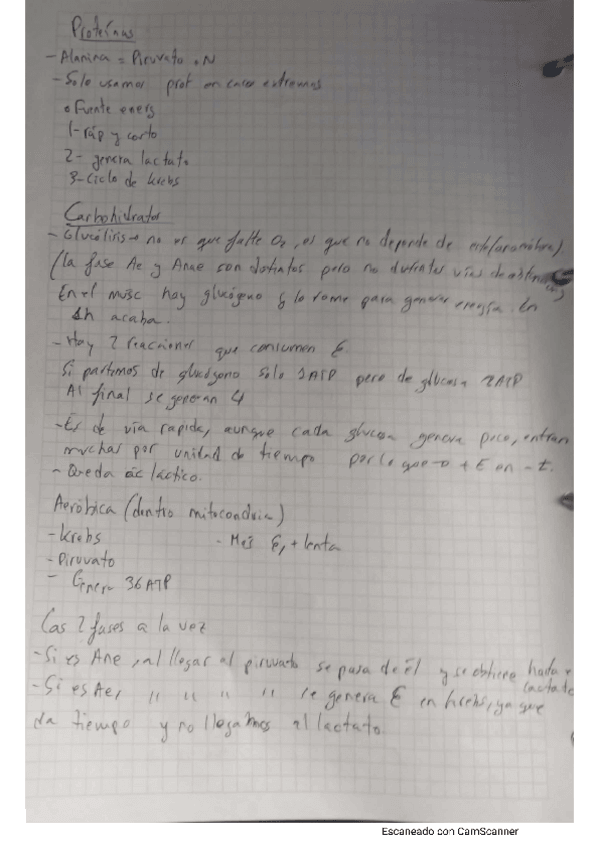 Proteínas
- Alanina = Piruvato + N
- Solo usamos prot en casos extremos
o Fuente energ
1- ráp y corto
2- genera lactato
3- Ciclo de krebs
Carbohidratos
- Glucólisis → no es que falte O₂, es que no depende de este (anaeróbica)
(la fase Ae y Anae son distintas pero no diferentes vías de
En el musc hay glucógeno y lo rome para generar energía. En
1h acaba.
- Hay 2 reacciones que consumen E
Si partimos de glucógeno solo 1ATP pero de glucosa 2ATP
Al final se generan 4
- Es de vía rapida, aunque cada glucosa genera poco, entran
muchas por unidad de tiempo por lo que → + E en - t.
- Queda ác láctico.
Aeróbica (dentro mitocondria)
- Krebs - Más E, + lenta
- Piruvato
- Genera 36 ATP
Las 2 fases a la vez
- Si es Ane, al llegar al piruvato se pasa de él y se obtiene hasta
lactato
- Si es Ae, " " " " se genera E en krebs, ya que
da tiempo y no llegamos al lactato.
Escaneado con CamScanner